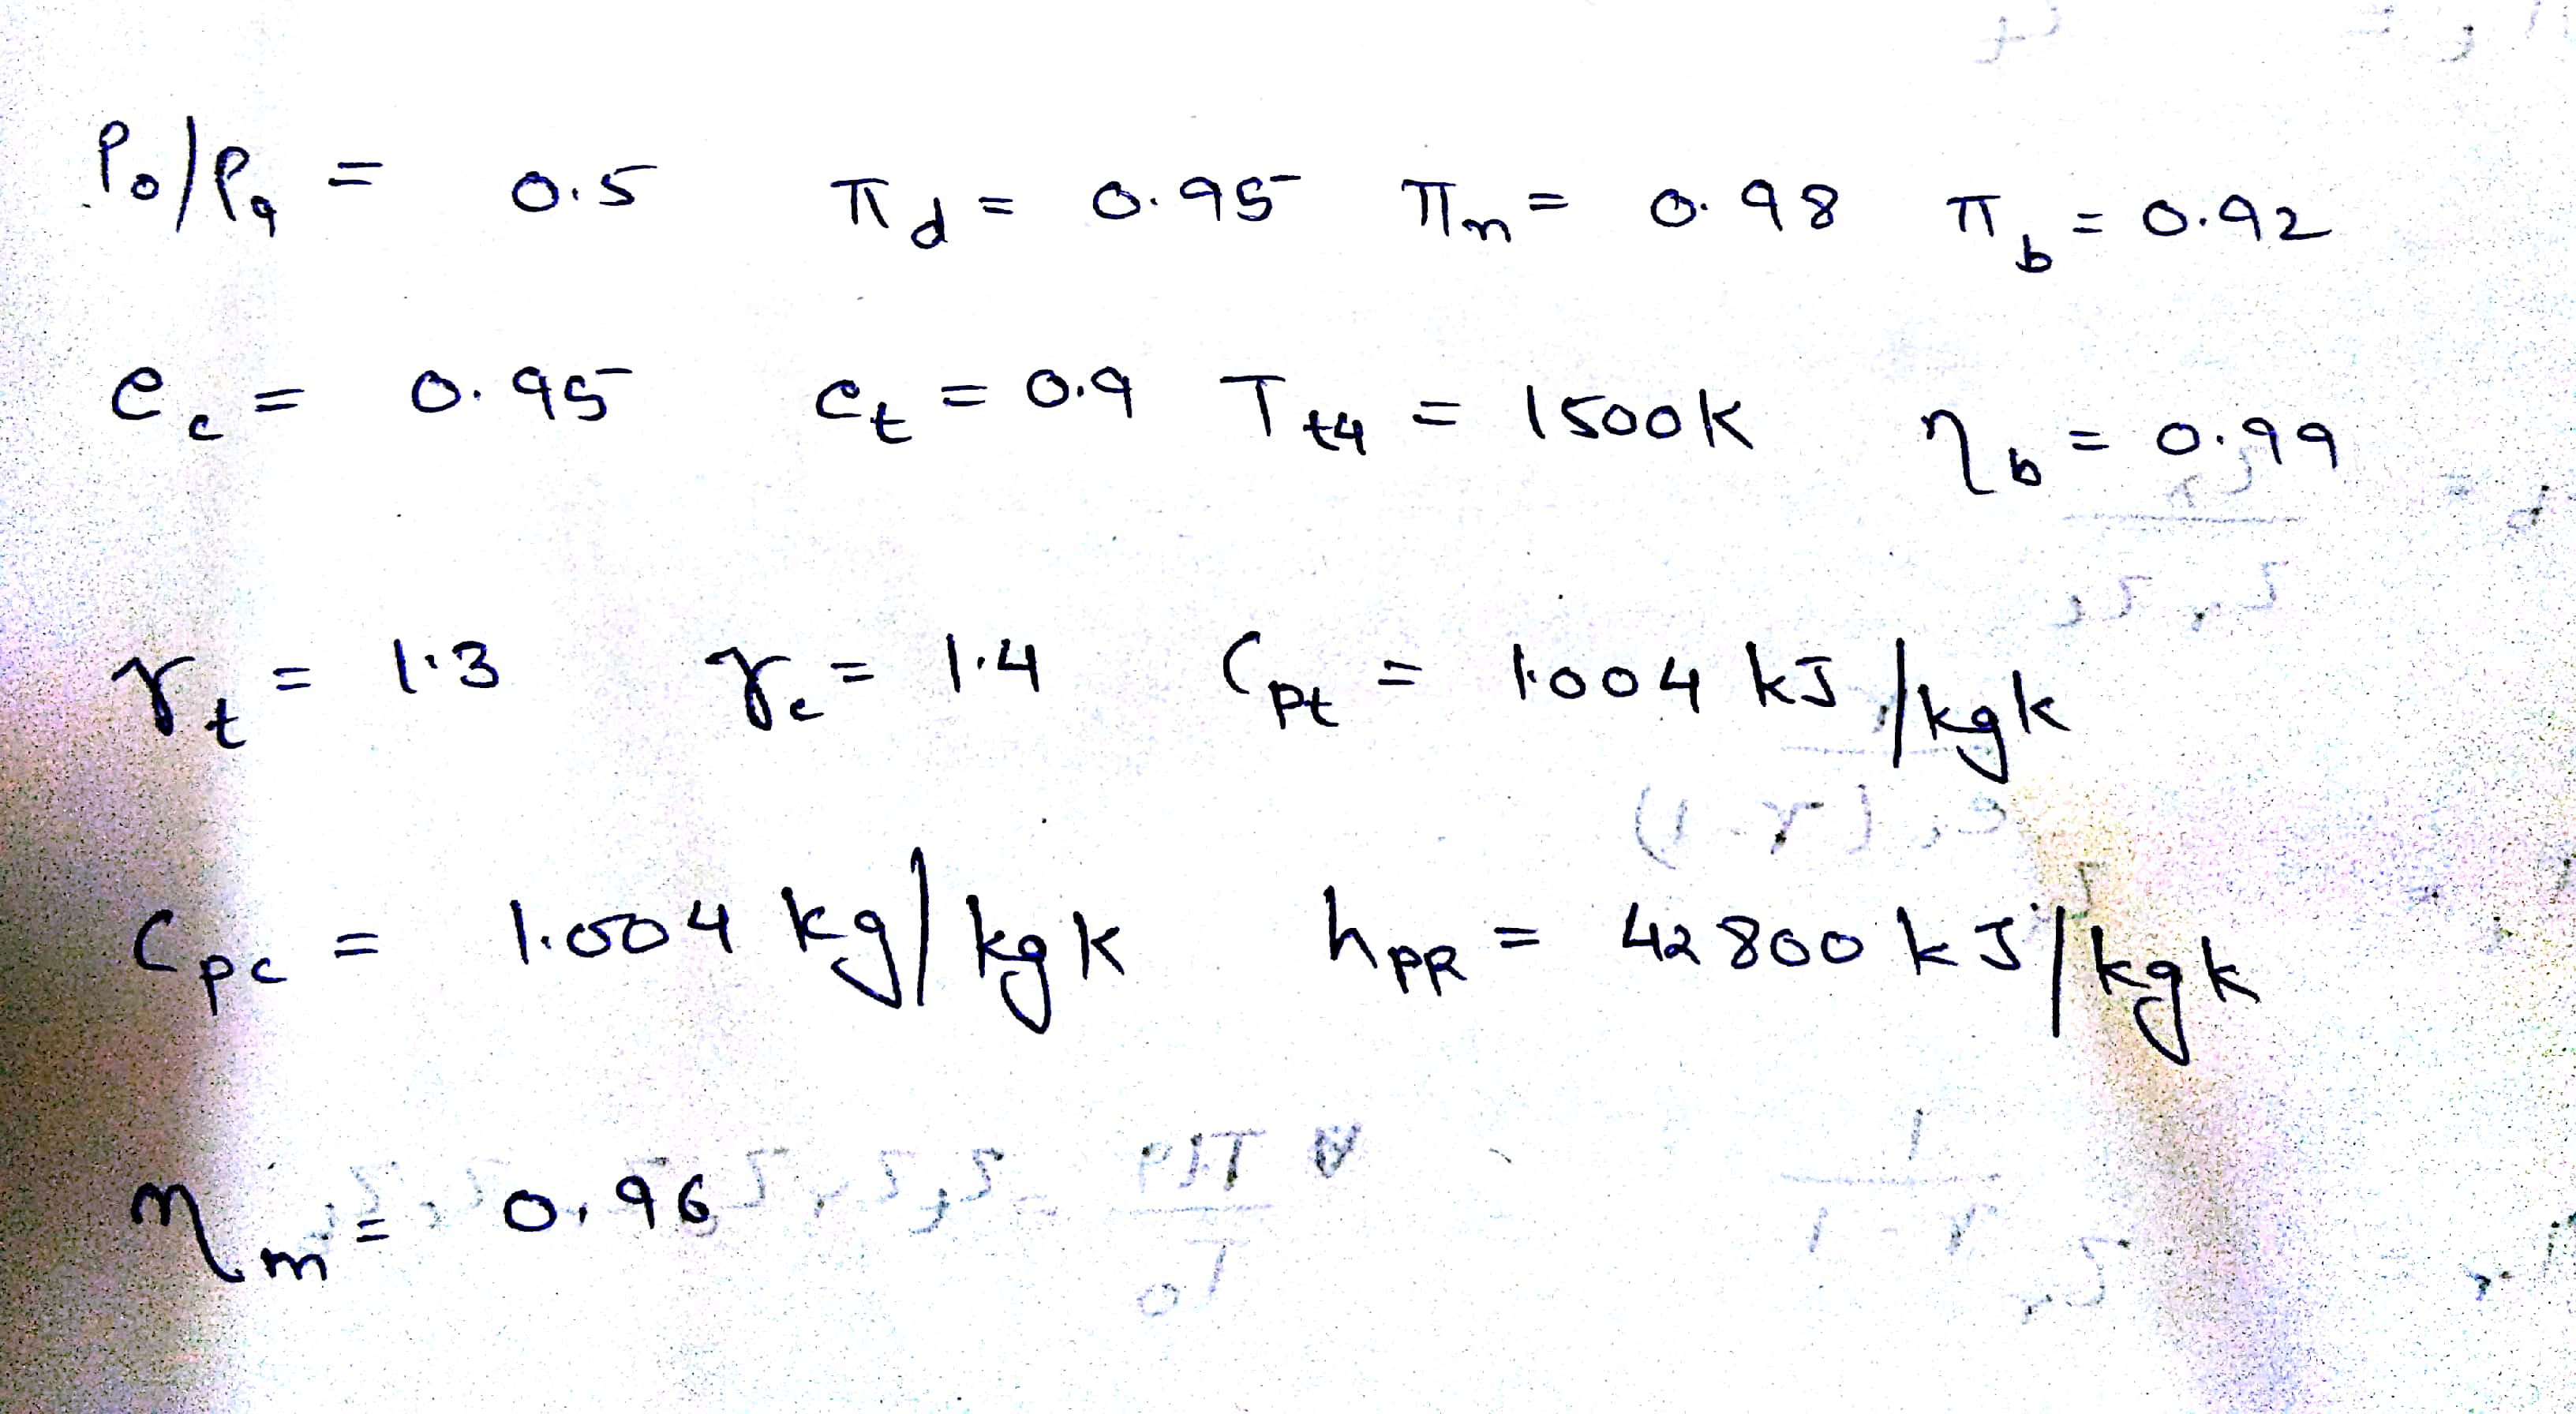 P₀/P₉ = 0.5 π_d = 0.95 π_n = 0.98 π_b = 0.92
e_c = 0.95 e_t = 0.9 T_t4 = 1500K η_b = 0.99
γ_t = 1.3 γ_c = 1.4 C_pt = 1.004 kJ/kgk
C_pc = 1.004 kg/kgk h_PR = 42800 kJ/kgk
η_m = 0.96